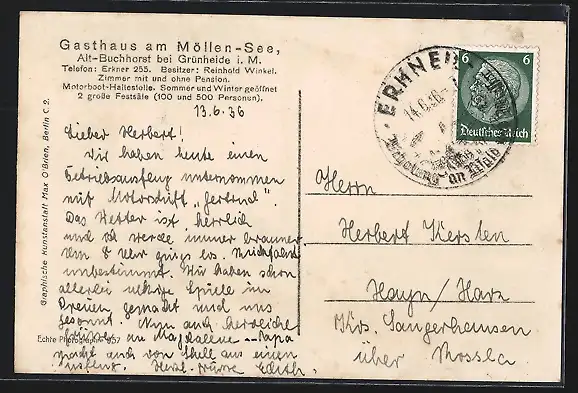 Gasthaus am Möllen-See,
Alt-Buchhorst bei Grünheide i. M.
Telefon: Erkner 255. Besitzer: Reinhold Winkel.
Zimmer mit und ohne Pension.
Motorboot-Haltestelle. Sommer und Winter geöffnet
2 große Festsäle (100 und 500 Personen).
13.6.36
Lieber Herbert!
Wir haben heute einen
Betriebsausflug unternommen
mit Motorschiff „Gertrud".
Das Wetter ist herrlich
und ich werde immer brauner
8 Uhr
unbestimmt. Wir haben schon
allerlei Spiele im
Freien gemacht und uns
gesonnt. Nun auch herzliche
Grüße an Magdalene
macht auch von Stelle aus einen
Ausflug. Herzl. Grüsse Edith.
Graphische Kunstanstalt Max O'Brien, Berlin C 2.
Echte Photographie 957
ERKNER
14.6.36
Erholung an Wald
6 6
Deutsches Reich
Herrn
Herbert Kersten
Hayn/Harz
Krs. Sangerhausen
über Rossla